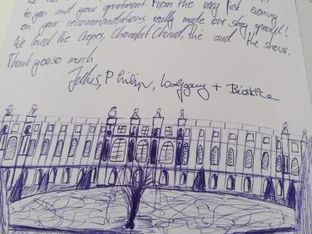 to you and your apartment. From the very first evening
on your recommendations really made our stay special!
We loved the crepes, the and the show.
Thank you so much,
Philipp, Wolfgang +